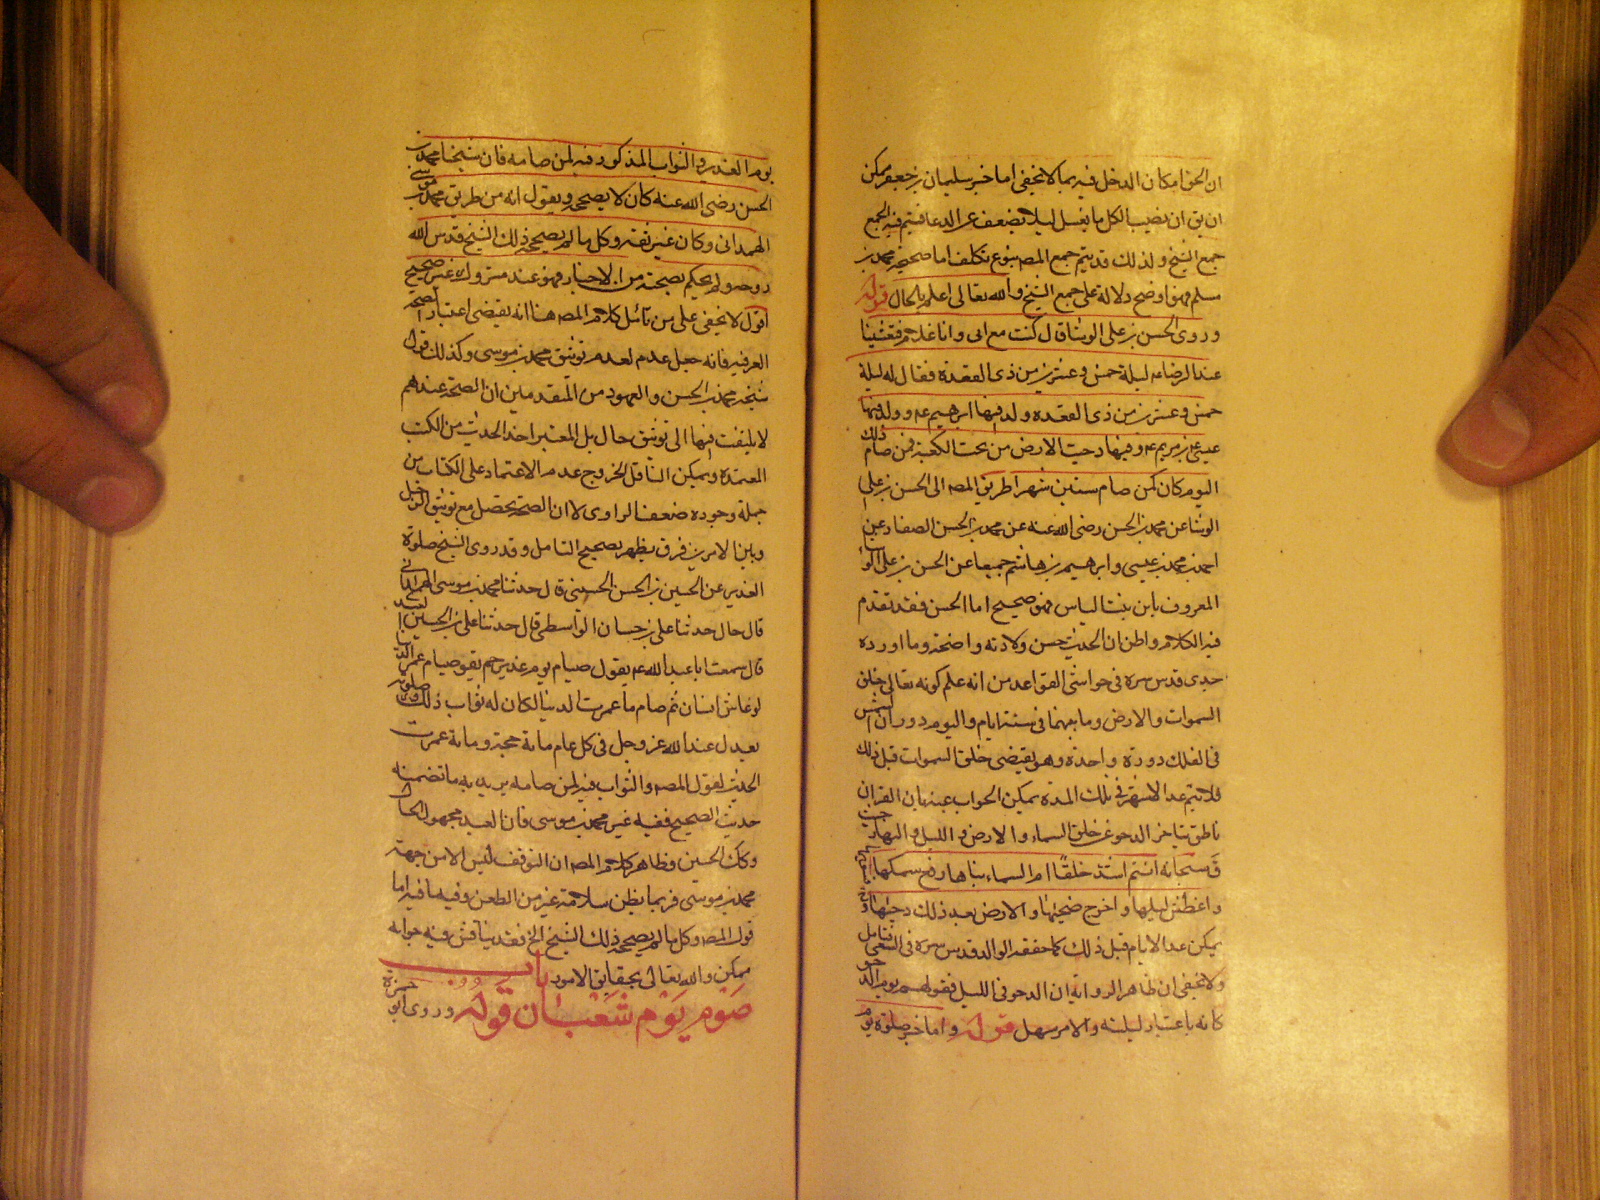 ان الحق امكان الدخل فيه بما لا يخفى اما خبر سليمان بن جعفر يمكن
ان يق ان نصب الكل ما يغسل ليلا يضعف عن الدعا فيتم فيه الجمع
جمع الشيخ ولذلك قد يتم جمع المصه بنوع تكلف اما صحيحة محمد بن
مسلم فهو اوضح دلالة على جمع الشيخ والله تعالى اعلم بالحال قوله
وروى الحسن بن على الوشا قال كنت مع ابى وانا غلام فتعشينا
عند الرضا عه ليلة خمس وعشرين من ذى القعدة فقال له ليلة
خمس وعشرين من ذى القعده ولد فيها ابرهيم عه وولد فيها
عيسى بن مريم عه وفيها دحيت الارض من تحت الكعبة فمن صام ذلك
اليوم كان كمن صام ستين شهرا طريق المصه الى الحسن بن على
الوشا عن محمد بن الحسن رضى الله عنه عن محمد بن الحسن الصفار عن
احمد بن محمد بن عيسى وابرهيم بن هاشم جميعا عن الحسن بن على الوشا
المعروف بابن بنت الياس فهو صحيح اما الحسن فقد تقدم
فيه الكلام واظن ان الحديث حسن ودلالته واضحة وما اورده
جدى قدس سره فى حواشى القواعد من انه علم كونه تعالى خلق
السموات والارض وما بينهما فى ستة ايام واليوم دوران الشمس
فى الفلك دورة واحدة وهو يقتضى خلق السموات قبل ذلك
فلا يتم عد الاشهر فى تلك المدة يمكن الجواب عنه بان القران
ناطق بتاخر الدحو عن خلق السماء والارض والليل والنهار حيث
قال سبحانه ءانتم اشد خلقا ام السماء بناها رفع سمكها
واغطش ليلها واخرج ضحيها والارض بعد ذلك دحيها وح
يمكن عد الايام قبل ذلك كما حققه الوالد قدس سره فى
ولا يخفى ان ظاهر الرواية ان الدحو فى الليل فقولهم يوم الدحو
كانه باعتبار ليلته والامر سهل قوله واما خبر صلوة يوم
يوم الغدير والثواب المذكور فيه لمن صامه فان شيخنا محمد بن
الحسن رضى الله عنه كان لا يصححه ويقول انه من طريق محمد بن موسى
الهمدانى وكان غير ثقة وكل ما لم يصححه ذلك الشيخ قدس الله
روحه ولم يحكم بصحته من الاخبار فهو عندنا متروك غير صحيح
اقول لا يخفى على من تامل كلام المصه هنا انه يقتضى اعتبار الصحة
العرفية فانه جعل عدم لعدم توثيق محمد بن موسى وكذلك قول
شيخه محمد بن الحسن والمعهود من المتقدمين ان الصحة عندهم
لا يلتفت فيها الى توثيق حال بل المعتبر اخذ الحديث من الكتب
المعتمدة ويمكن الخروج عدم الاعتماد على الكتاب من
جملة وجوده ضعف الراوى لا ان الصحة تحصل مع توثيق الرجل
وبين الامرين فرق يظهر بصحيح التامل وقد روى الشيخ صلوة
الغدير عن الحسين بن الحسن الحسينى قال حدثنا محمد بن موسى الهمدانى
قال حال حدثنا على بن حسان الواسطى قال حدثنا على بن الحسين العبدى
قال سمعت ابا عبد الله عه يقول صيام يوم غدير خم يقو صيام عمر الدنيا
لو عاش انسان ثم صام ما عمرت الدنيا لكان له ثواب ذلك وصلوته
يعدل عند الله عز وجل فى كل عام ماية حجة وماية عمرة
الحديث لقول المصه والثواب فيه لمن صامه يريد به ما تضمنه
حديث الصحيح ففيه غير محمد بن موسى فان العبد مجهول الحال
وكك الحسين وظاهر كلام المصه ان التوقف ليس الا من جهة
محمد بن موسى فربما يظن سلامة غيره من الطعن وفيه ما فيه اما
قول المصه وكل ما لم يصححه ذلك الشيخ الخ فقد يناقش فيه جوابه
ممكن والله تعالى بحقايق الامور باب
صوم يوم شعبان قوله وروى ابو حمزة